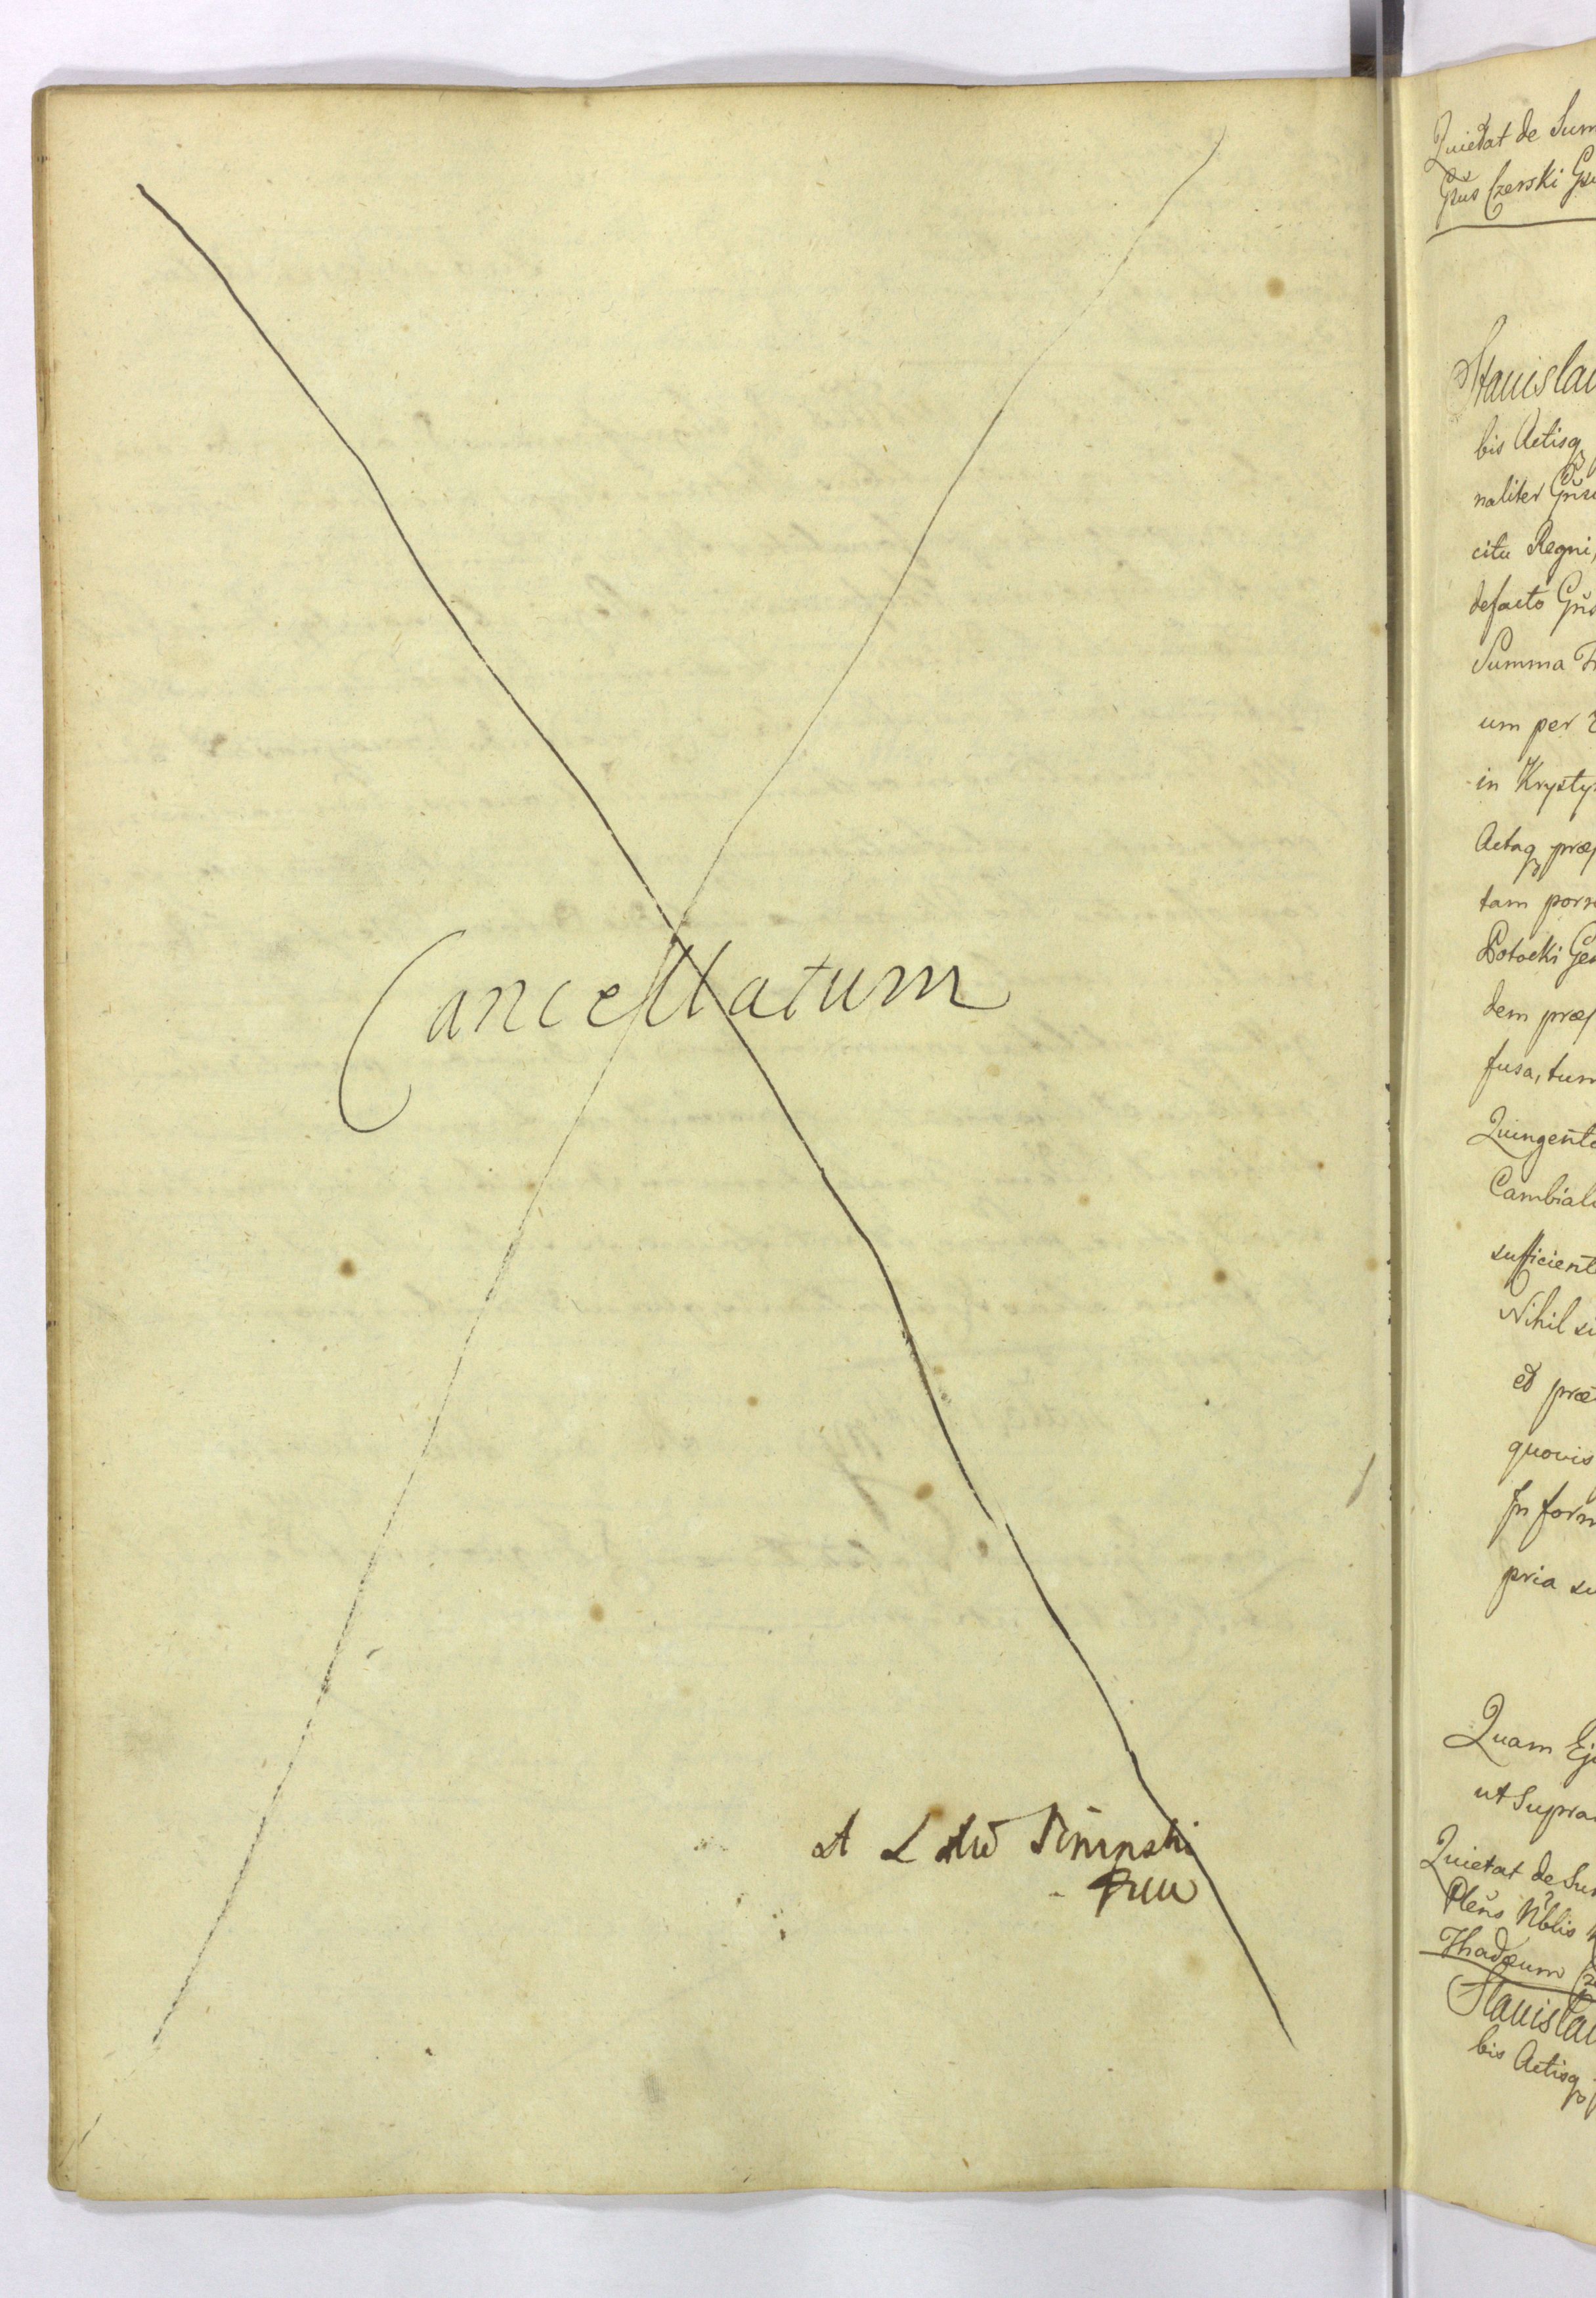 Cancellatum
Quietat de Sum
Gnus Czerski Gn
Stanislau
bis Actisq
naliter Gnsu
citu Regni,
defacto Gns
Summa
um per
in Krysty
Actaq præ
tam porr
Potocki Ge
dem præ
fusa, tum
Quingent
Cambiale
sufficient
Nihil si
et præ
quovis
In form
pria su
Quam Ej
ut Supra
Quietat de Su
Plens Nblis
Thadæum
Stanislau
bis Actisq